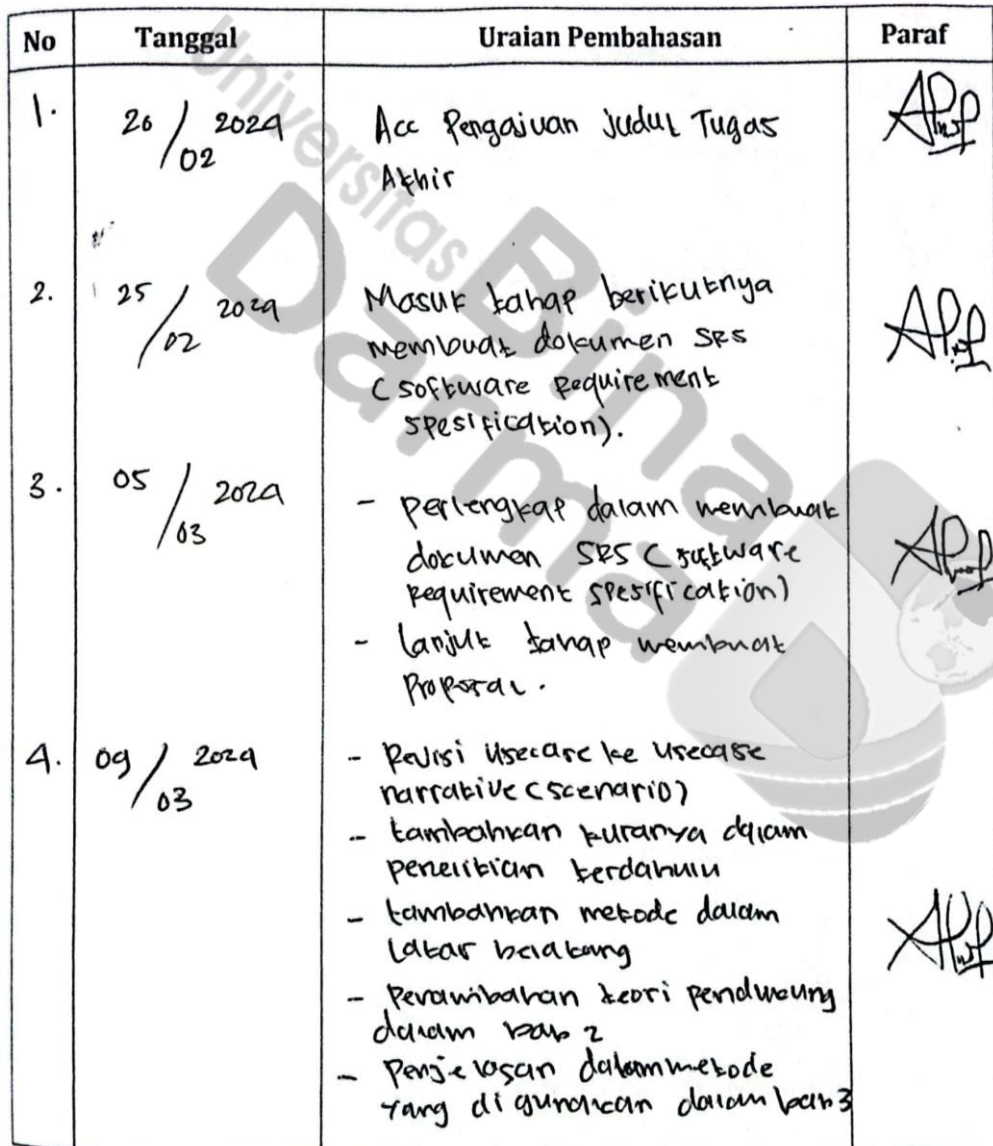 No Tanggal Uraian Pembahasan Paraf
1. 20/02 2024 Acc Pengajuan judul Tugas
Akhir
2. 25/02 2024 Masuk tahap berikutnya
membuat dokumen SRS
(software requirement
spesification).
3. 05/03 2024 - perlengkap dalam membuat
dokumen SRS (software
requirement spesification)
- lanjut tahap membuat
proposal.
4. 09/03 2024 - Revisi usecase ke usecase
narrative (scenario)
- tambahkan kuranya dalam
penelitian terdahulu
- tambahkan metode dalam
latar belakang
- Penambahan teori pendukung
dalam bab 2
- Penjelasan dalam metode
yang di gunakan dalam bab 3
Universitas
Bina
Darma